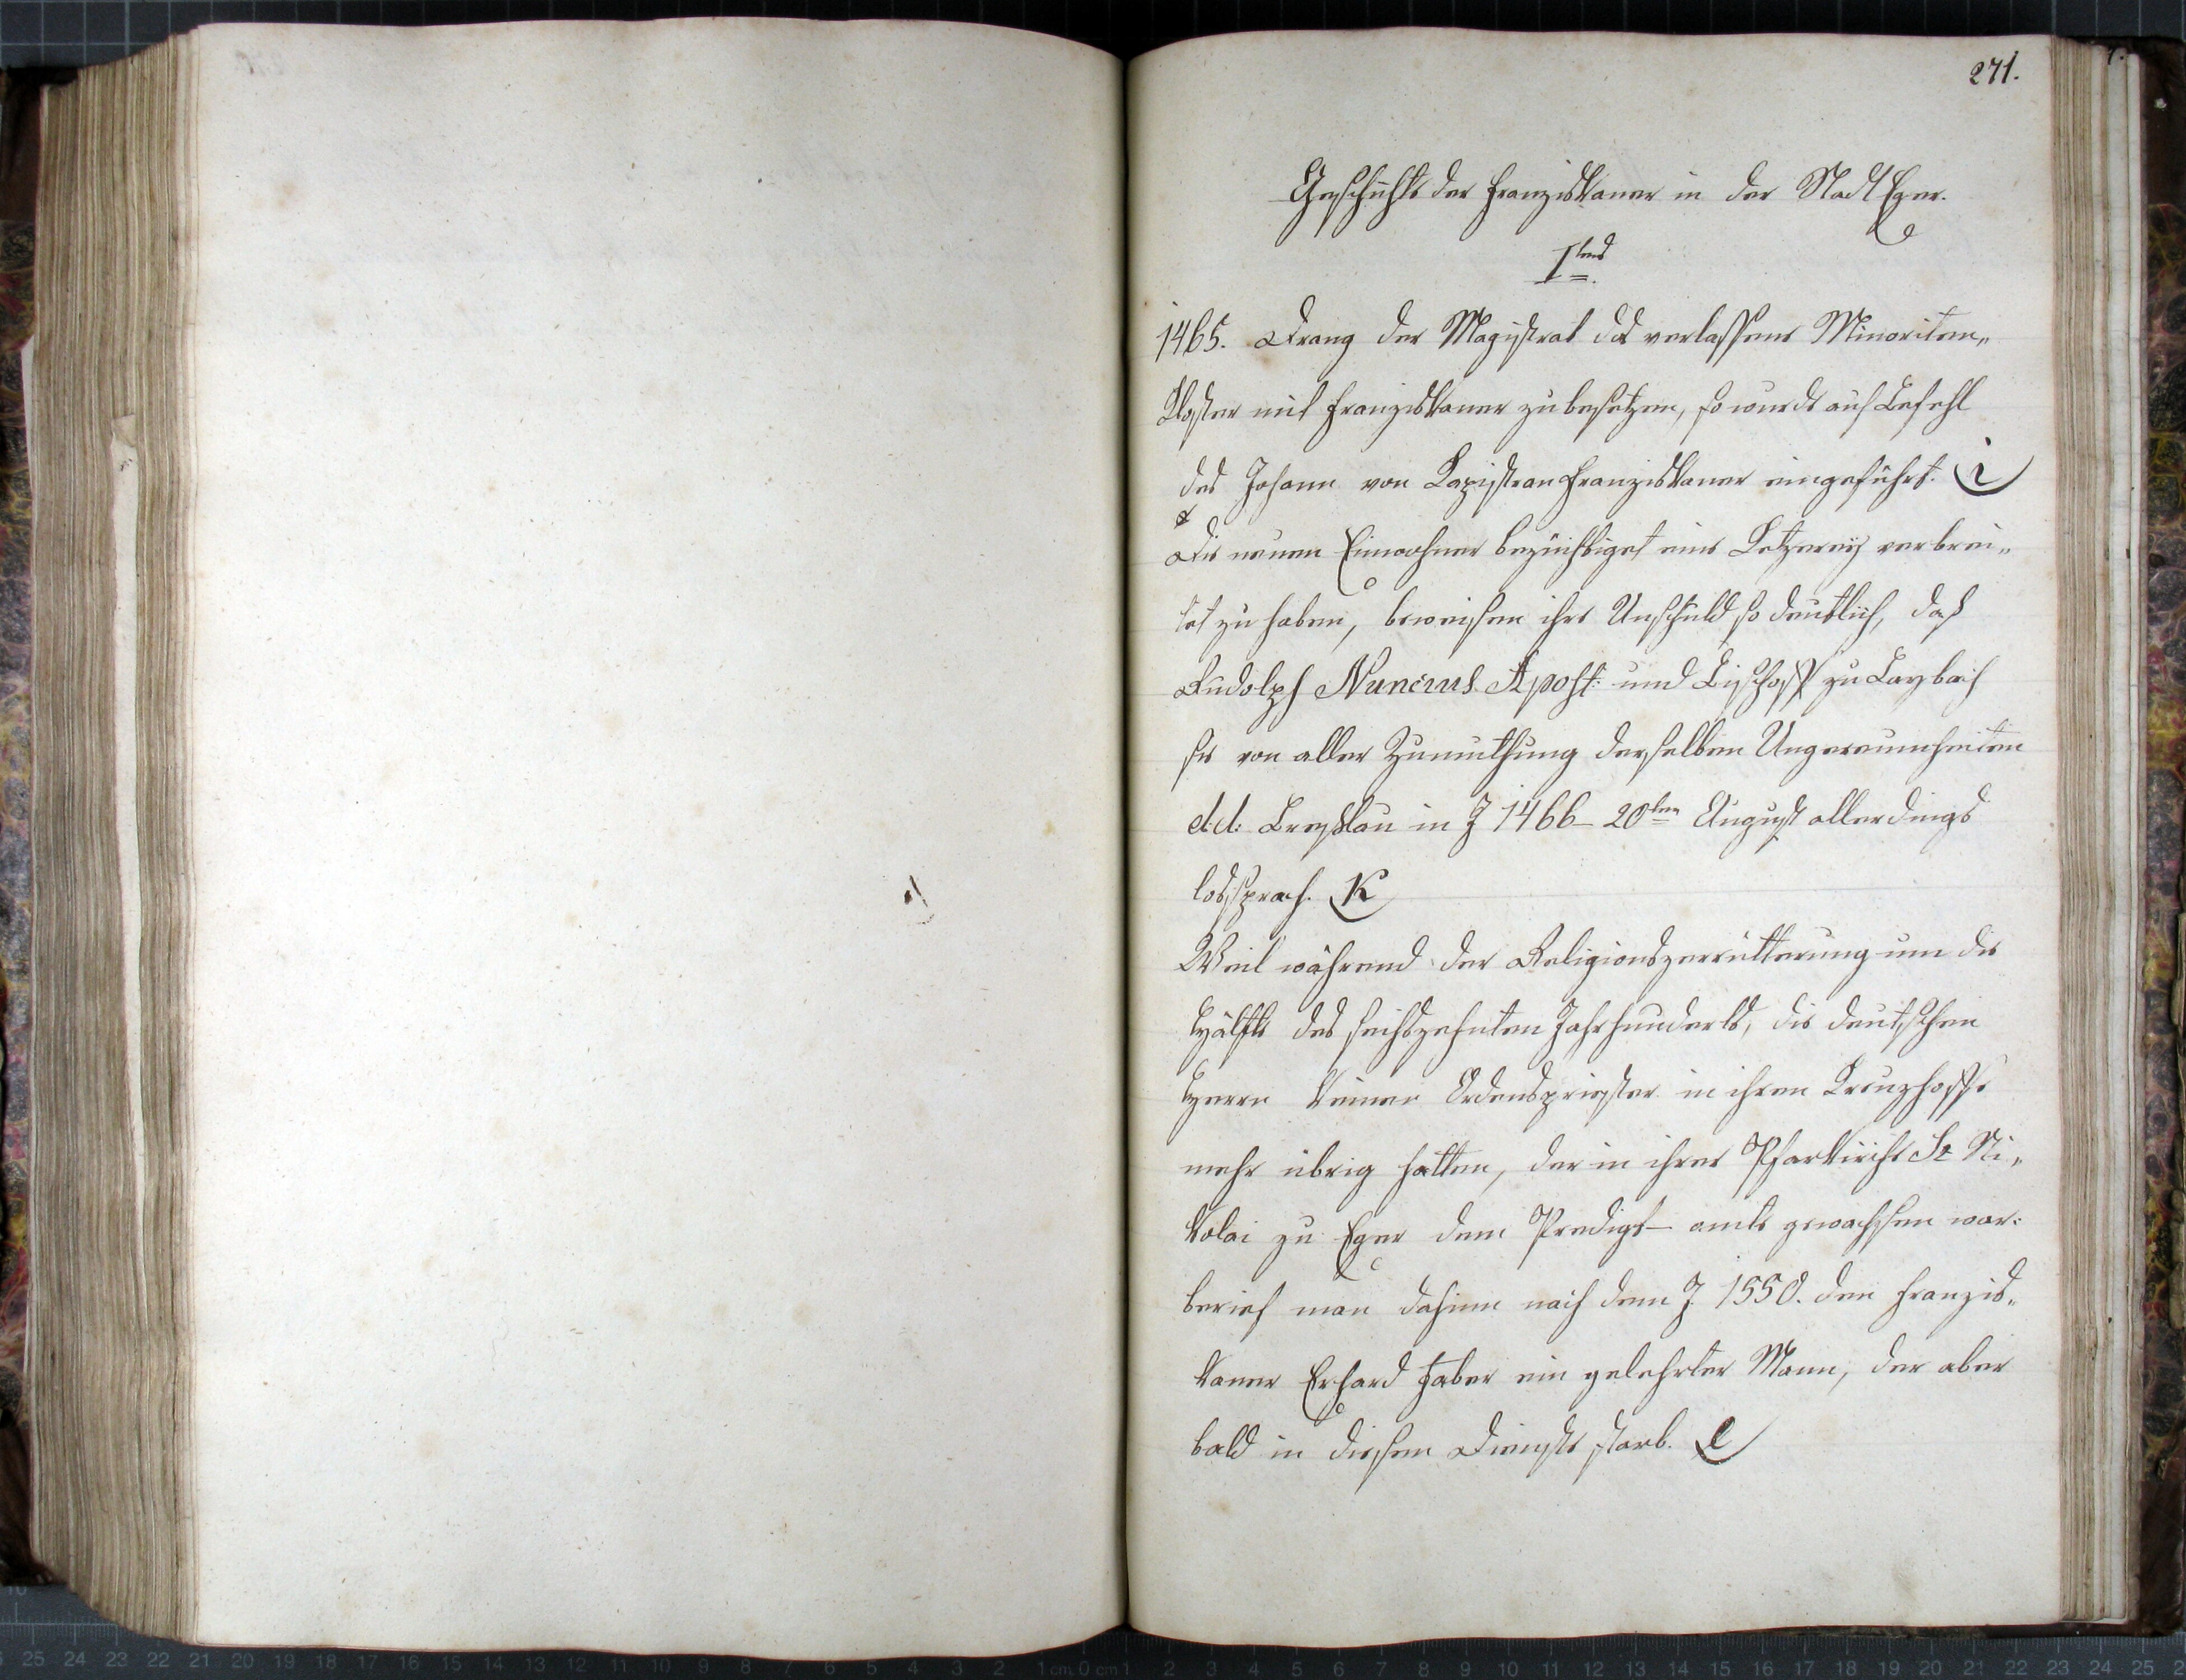 271.
Geschichte der Franziskaner in der Stadt Eger.
Itens
1465. Drang der Magistrat das verlassene Minoriten„
Kloster mit Franziskaner zu besetzen, so wurde auf Befehl
des Johann von Kapistran Franziskaner eingeführt. i
Die neuen Einwohner bezüchtiget eine Ketzereij verbrei„
tet zu haben, beweisen ihre Unschuld so deutlich, daß
Rudolph Nuncius Apost: und Bischoff zu Laybach
sie von aller Zumuthung derselben Ungereumheiten
d:d: Breslau in J 1466 – 20ten August allerdings
lossprach. K
Weil während der Religionszerrütterung um die
Hälfte des sechszehnten Jahrhunderts, die deutschen
Herrn keinen Ordenspriester in ihren Kreuzhoffe
mehr übrig hatten, der in ihrer Pfarkirche St Ni„
kolai zu Eger dem Predigt– amte gewachsen war:
berief man dahinn nach dem J. 1550. den Franzis„
kaner Erhard Faber ein gelehrter Mann, der aber
bald in diesem Dienste starb. l